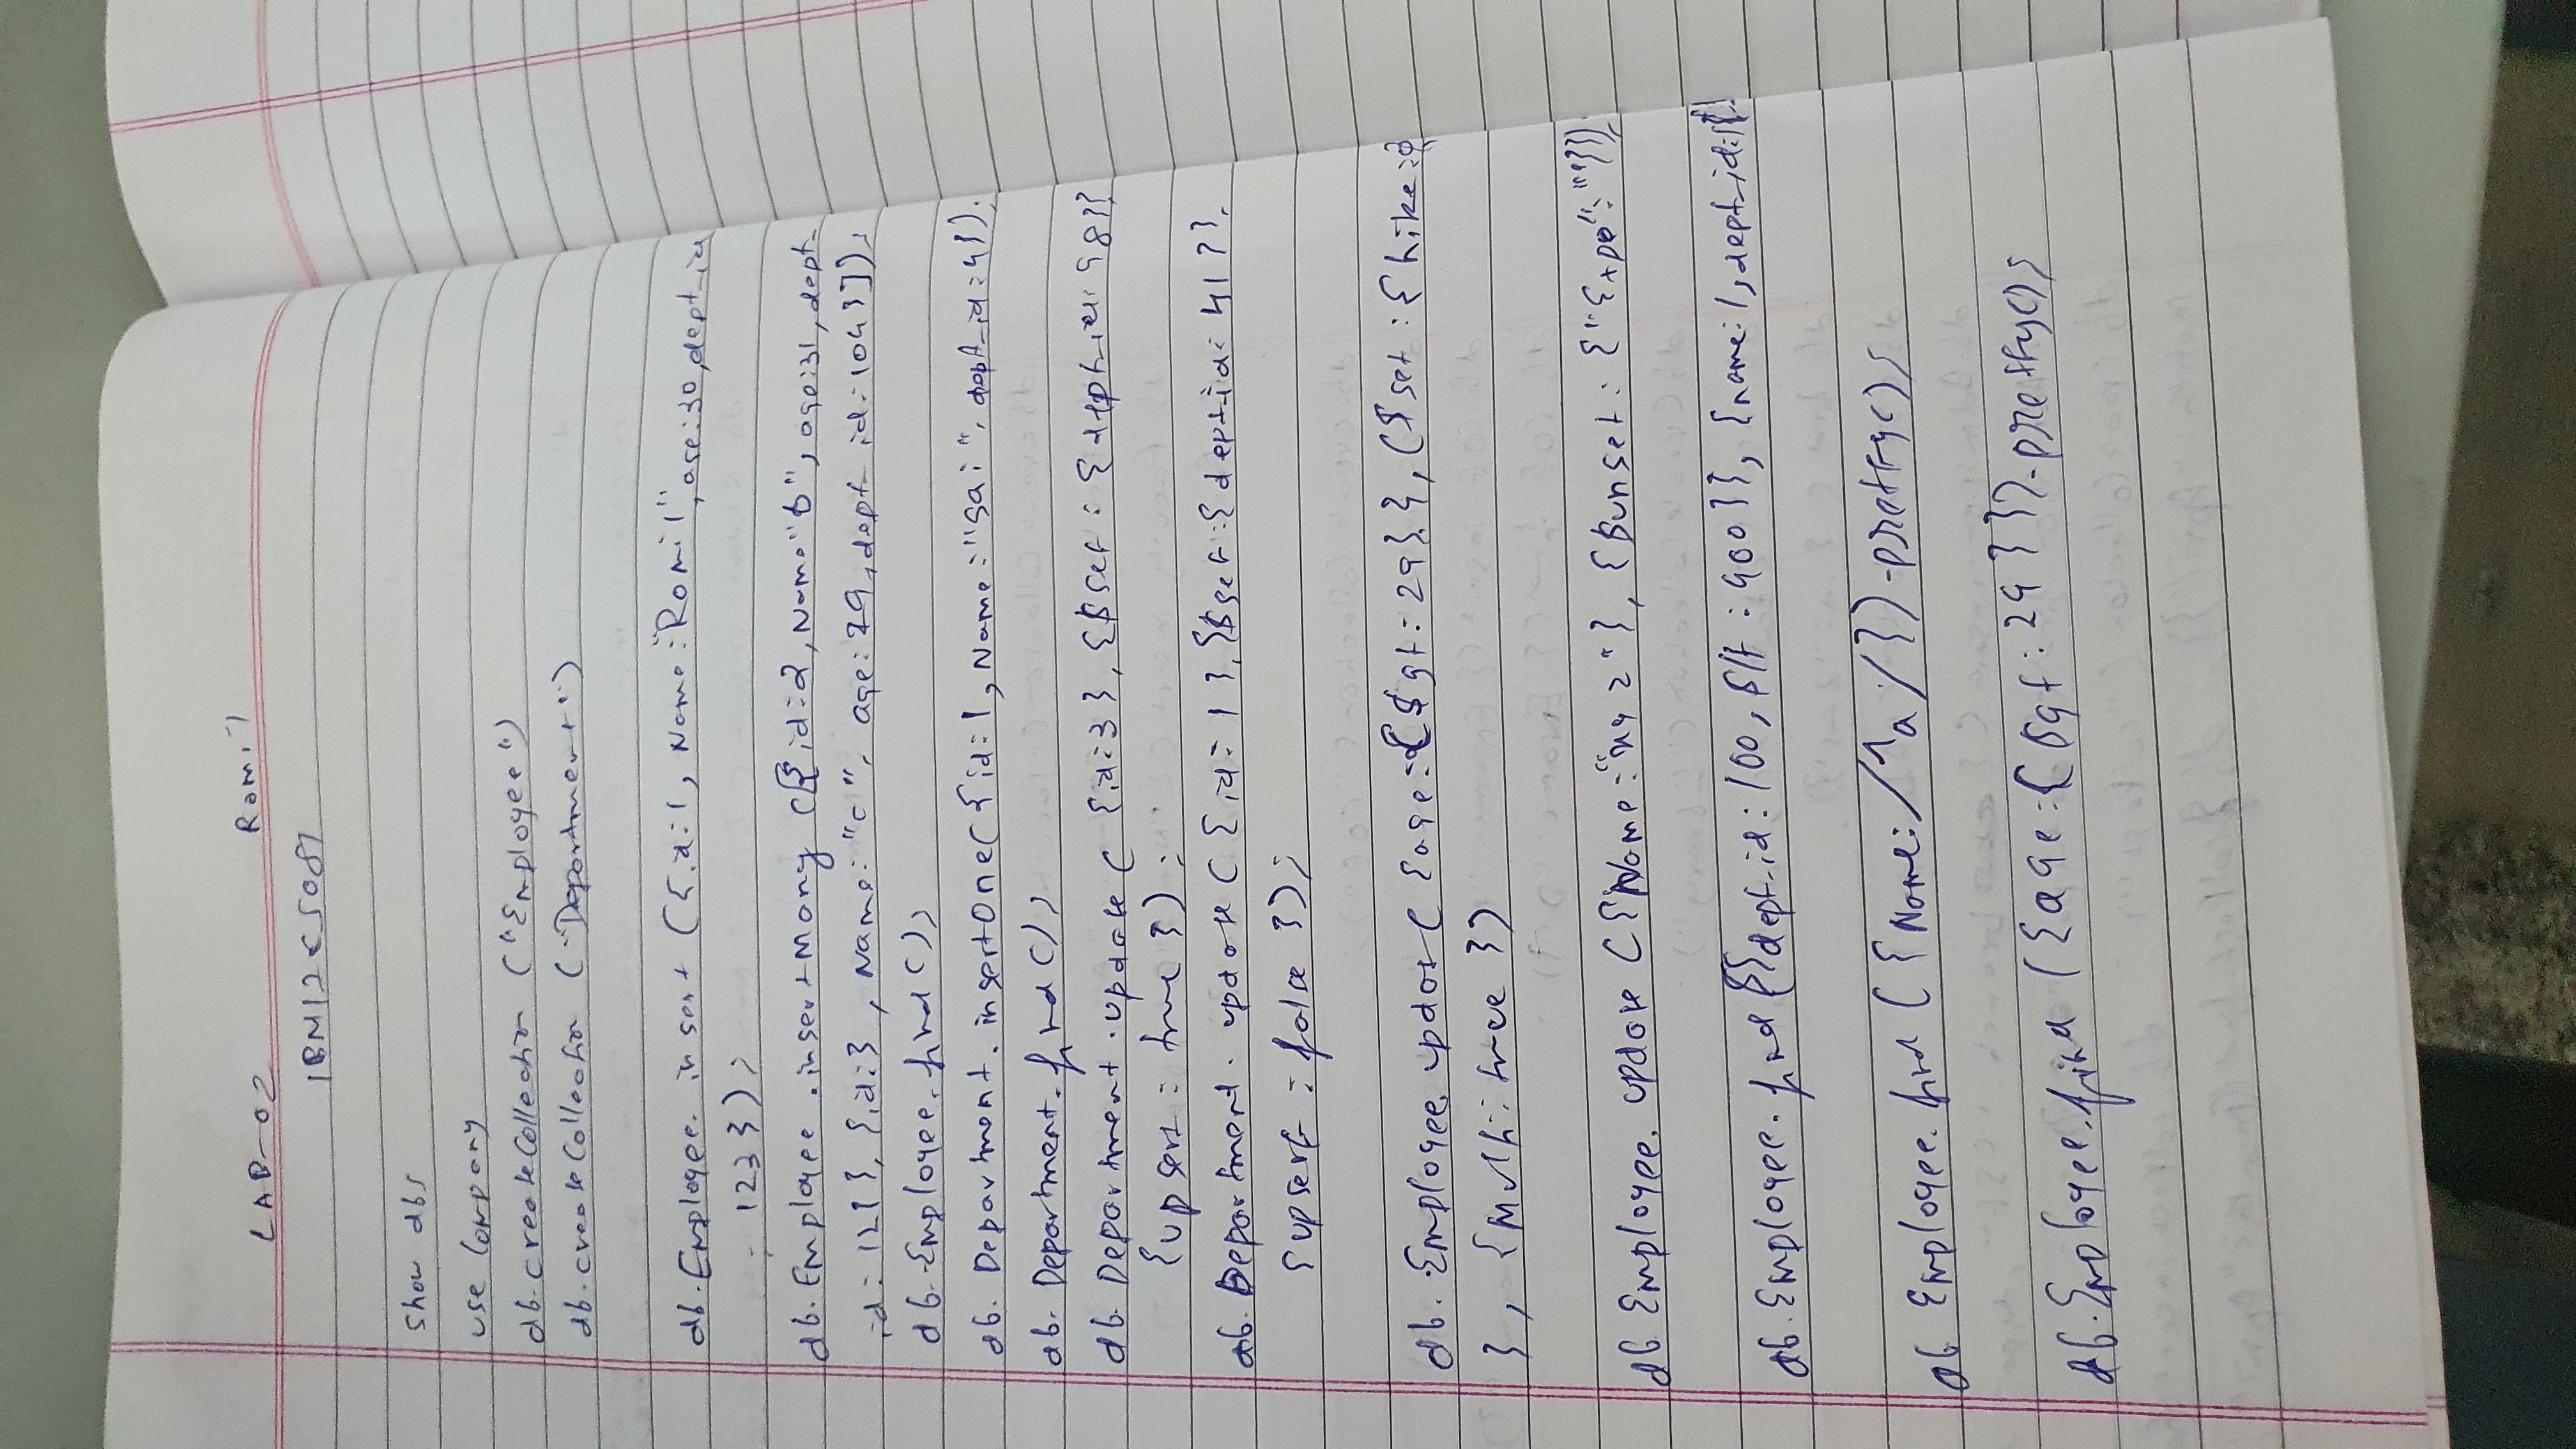 LAB-02 Romil
1BM17CS081
Show dbs
use Company
db.createCollection ("Employee")
db.createCollection ("Department")
db.Employee.insert ({id:1, Name:"Romil", age:30, dept_id
: 123});
db.Employee.insertMany ([{id:2, Name"b", age:31, dept_
id:121}, {id:3, Name:"c", age:29, dept_id:104}]);
db.Employee.find();
db.Department.insertOne({id:1, Name:"Sai", dept_id:4});
db.Department.find();
db.Department.update ( {id:3}, {$set : {dept_id: 98}}
{upsert : true});
db.Department.update ( {id:1}, {$set:{dept_id: 41}},
{upsert : false});
db.Employee.update ( {age:{$gt:29}}, ($set : {hike:
}, {multi:true})
db Employee.update ({Name:"xyz"}, {$unset: {"Expe":""}});
db.Employee.find {{dept_id:100, $lt:400}}, {name:1, dept_id:1
db Employee.find ({Name:/^a/}).pretty();
db.Employee.find ({age:{$gt:29}}).pretty();